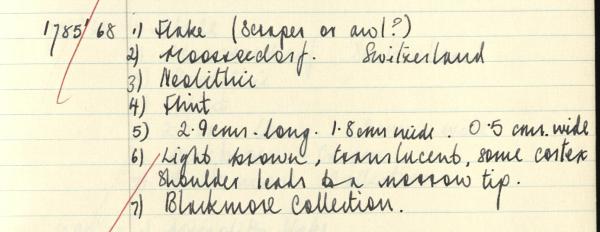 1785/68 1) Flake (Scraper or awl?)
2) Moosseedorf. Switzerland
3) Neolithic
4) Flint
5) 2.9 cms. long. 1.8 cms wide. 0.5 cms. wide
6) Light brown, translucent, some cortex
shoulder leads to a narrow tip.
7) Blackmore Collection.